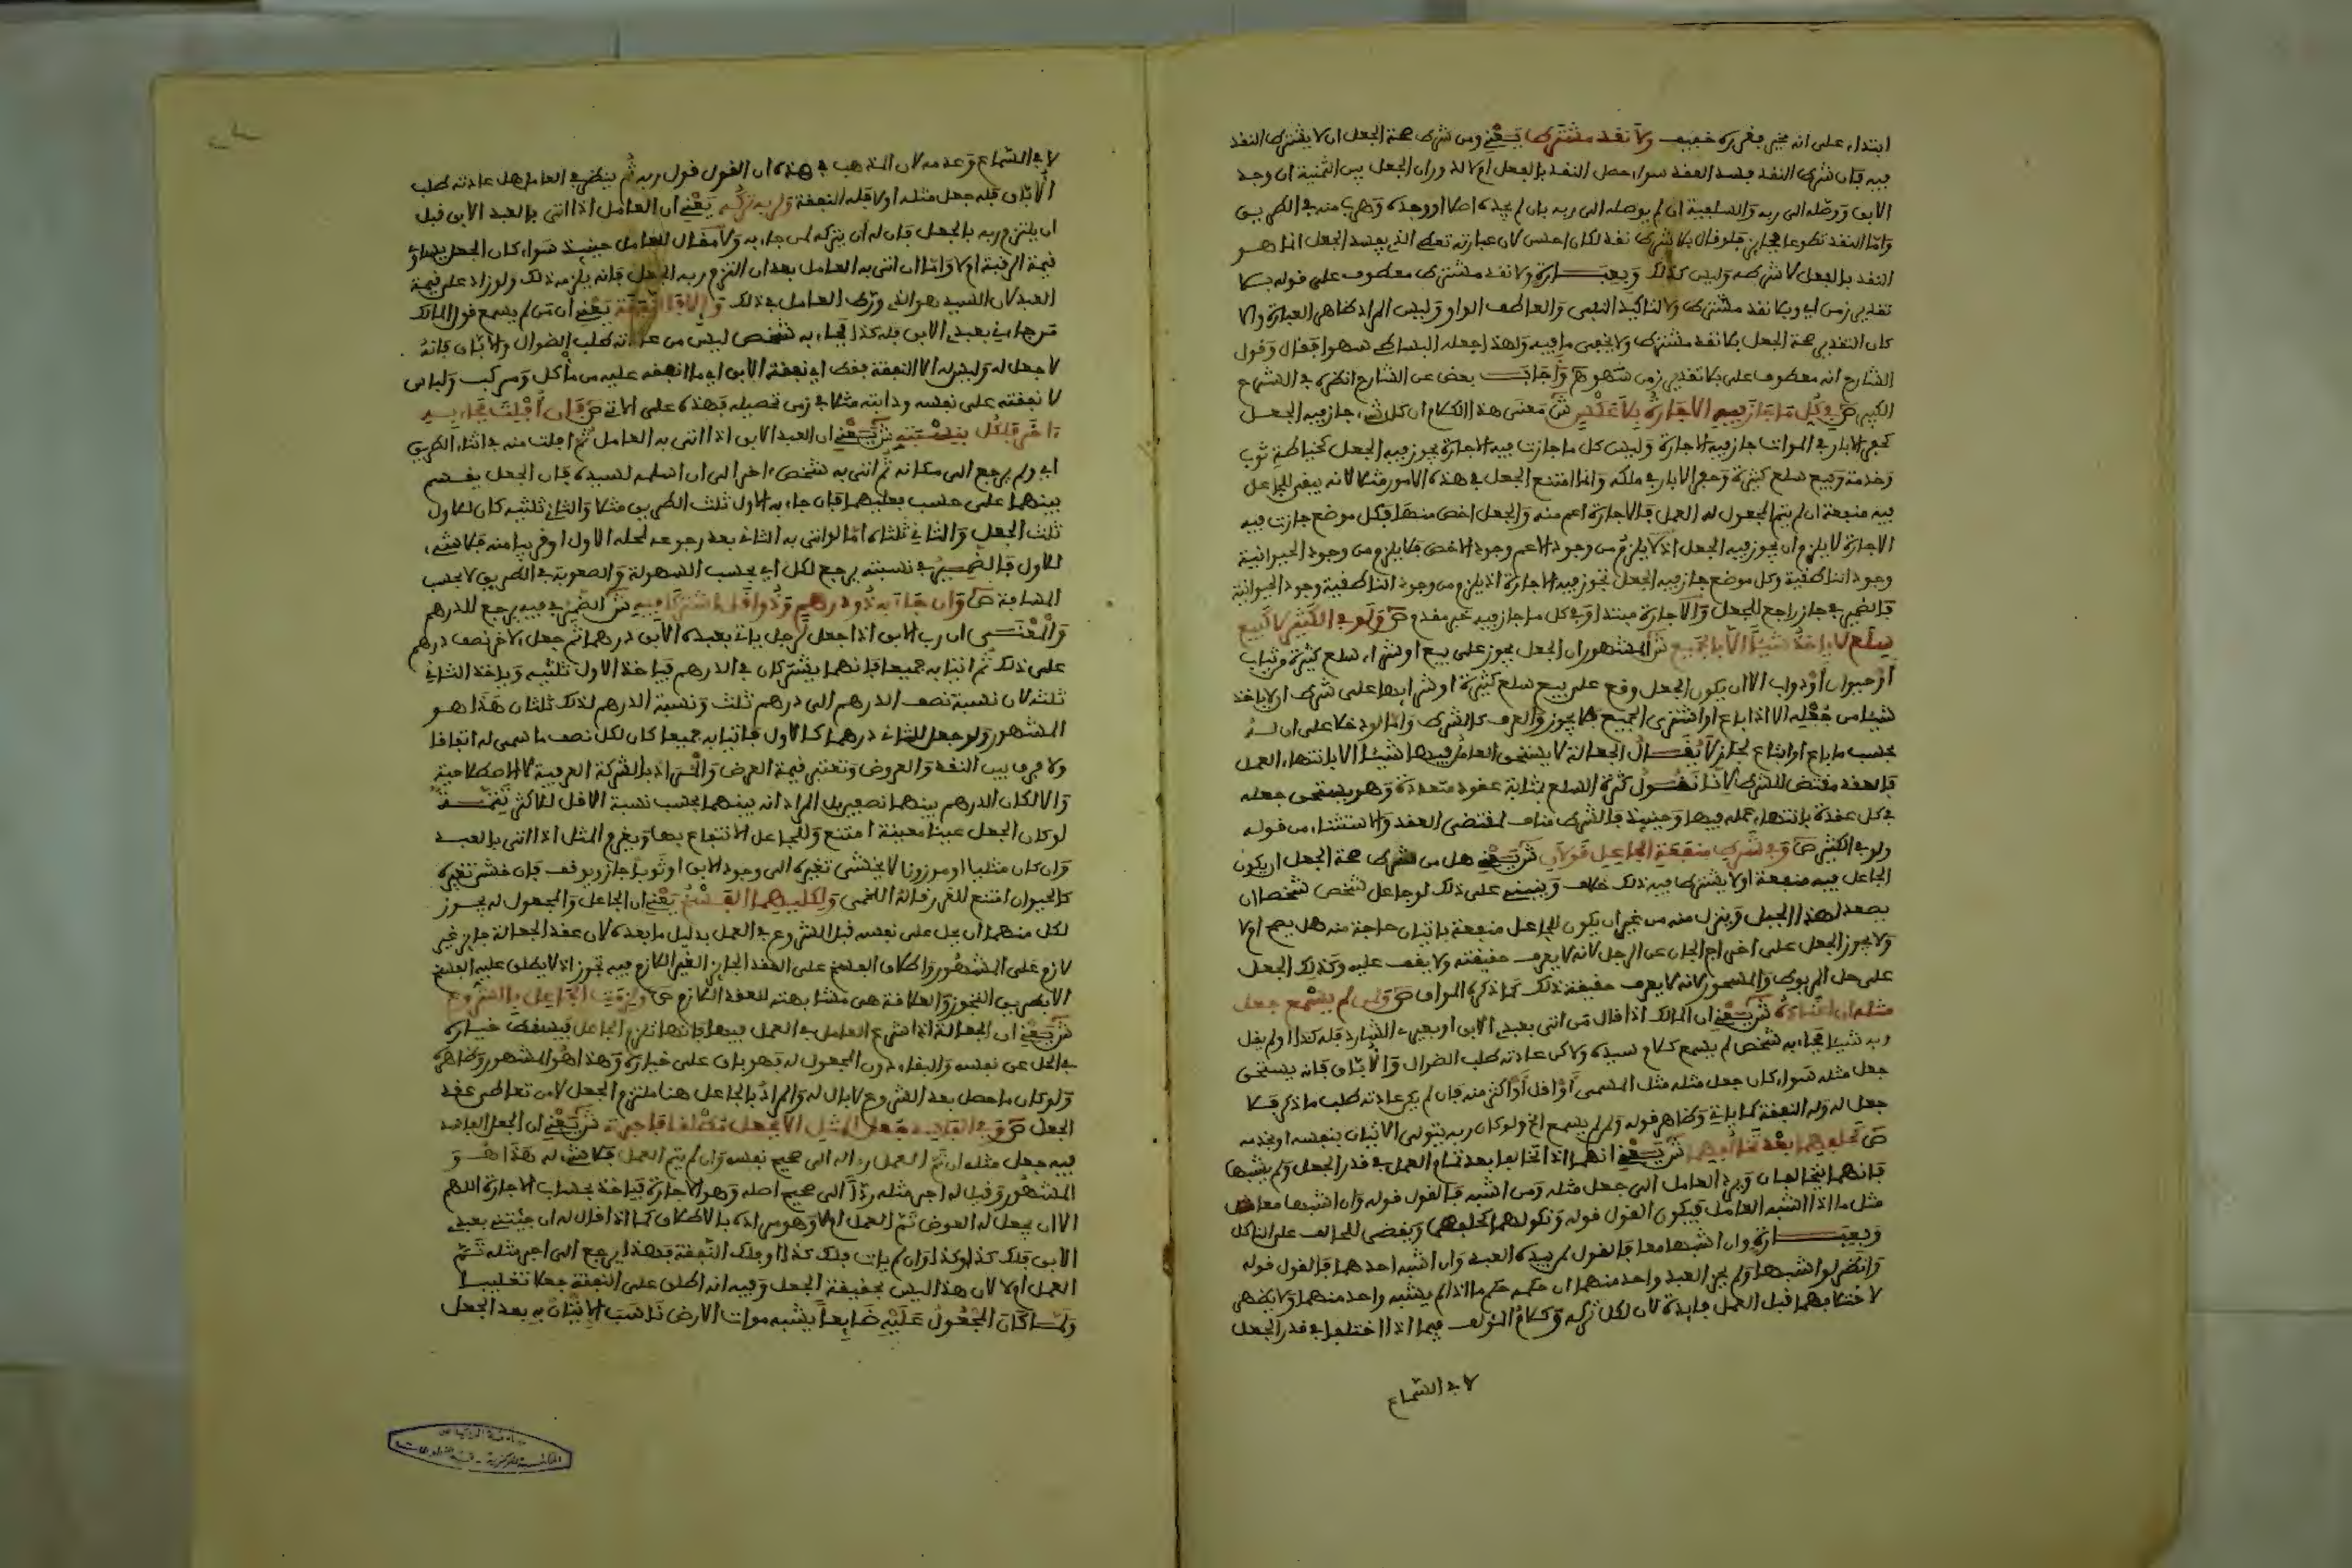 ابتداء على انه يخير بغيره خفيف ولا نقد مشترط يعني ومن شرط صحة الجعل ان لا يشترط النقد
فيه فان شرط النقد فسد العقد سواء حصل النقد بالفعل ام لا لدوران الجعل بين الثمنية ان وجد
الابق ووصله الى ربه والسلفية ان لم يوصله الى ربه بان لم يجده اصلا او وجده وهرب منه في الطريق
واما النقد تطوعا فجايز فلو قال بلا شرط نقد لكان احسن لان عبارته تعطي الذي يفسد الجعل انما هو
النقد بالفعل لا شرطه وليس كذلك وبعبارة ولا نقد مشترط معطوف على قوله بلا
تقدير زمن اي وبلا نقد مشترط ولا لتاكيد النفي والعاطف الواو وليس المراد ظاهر العبارة والا
كان التقدير صحة الجعل بلا نقد مشترط ولا يخفى ما فيه ولهذا جعله البساطي سهوا فقال وقول
الشارح انه معطوف على بلا تقدير زمن سهو ه واجاب بعض عن الشارح انظره في الشرح
الكبير ص في كل ما جاز فيه الاجارة بلا عكس ش معنى هذا الكلام ان كل شيء جاز فيه الجعل
كحفر الابار في الموات جاز فيه الاجارة وليس كل ما جازت فيه الاجارة يجوز فيه الجعل كخياطة ثوب
وخدمة وبيع سلع كثيرة وحفر الابار في ملكه وانما امتنع الجعل في هذه الامور مثلا لانه يبقى للجاعل
فيه منفعة ان لم يتم المجعول له العمل فالاجارة اعم منه والجعل اخص منها فكل موضع جازت فيه
الاجارة لا يلزم ان يجوز فيه الجعل اذ لا يلزم من وجود الاعم وجود الاخص فلا يلزم من وجود الحيوانية
وجود الناطقية وكل موضع جاز فيه الجعل تجوز فيه الاجارة اذ يلزم من وجود الناطقية وجود الحيوانية
فالضمير في جاز راجع للجعل والاجارة مبتدا وفي كل ما جاز فيه خبر مقدم ص ولو في الكثير لا كبيع
سلع لا ياخذ شيئا الا بالجميع ش المشهور ان الجعل يجوز على بيع او شراء سلع كثيرة وثياب
او حيوان او دواب الا ان يكون الجعل وقع على بيع سلع كثيرة او شرايها على شرط ان لا ياخذ
شيئا من جعله الا اذا باع او اشترى الجميع فلا يجوز والعرف كالشرط واما لو دخلا على ان له
بحسب ما باع او ابتاع لجاز لا يقال الجعالة لا يستحق العامل فيها شيئا الا بانتهاء العمل
فالعقد مقتض للشرط لانا نقول كثرة السلع بمثابة عقود متعددة وهو يستحق جعله
في كل عقدة بانتهاء عمله فيها وحينيذ فالشرط مناف لمقتضى العقد والاستثناء من قوله
ولو في الكثير ص وفي شرط منفعة الجاعل قولان ش يعني هل من شرط صحة الجعل ان يكون
الجاعل فيه منفعة او لا يشترط فيه ذلك خلاف وينبني على ذلك لو جاعل شخص شخصا ان
يصعد لهذا الجبل وينزل منه من غير ان يكون للجاعل منفعة باتيان حاجة منه هل يصح او لا
ولا يجوز الجعل على اخراج الجان عن الرجل لانه لا يعرف حقيقته ولا يقف عليه وكذلك الجعل
على حل المربوط والمسحور لانه لا يعرف حقيقة ذلك كما ذكره المواق ص ولمن لم يسمع جعل
مثله ان اعتاده ش يعني ان المالك اذا قال من اتى بعبدي الابق او بعيري الشارد فله كذا ولم يقل
ربه شيئا فجاء به شخص لم يسمع كلام سيده ولاكن عادته طلب الضوال والاباق فانه يستحق
جعل مثله سواء كان جعل مثله مثل المسمى او اقل او اكثر منه فان لم يكن عادته طلب ما ذكر فلا
جعل له وله النفقة كما ياتي وظاهر قوله ولمن لم يسمع الخ ولو كان ربه يتولى الاتيان بنفسه او بخدمه
ص كحلفهما بعد تخالفهما ش يعني انهما اذا تخالفا بعد تمام العمل في قدر الجعل ولم يشبها
فانهما يتحالفان ويرد العامل الى جعل مثله ومن اشبه فالقول قوله وان اشبها معا
مثل ما اذا اشبه العامل فيكون القول قوله ونكولهما كحلفهما ويقضى للحالف على الناكل
وبعبارة وان اشبها معا فالقول لمن بيده العبد وان اشبه احدهما فالقول قوله
وانظر لو اشبها ولم يحز العبد واحد منهما ان حكمه حكم ما اذا لم يشبه واحد منهما ولا يظهر
لاختلافهما قبل العمل فايدة لان لكل تركه وكلام المولف فيما اذا اختلفا في قدر الجعل
لا في السماع
لا في السماع وعدمه لان المذهب في هذه ان القول قول ربه ثم ينظر في العامل هل عادته طلب
الاباق فله جعل مثله او لا فله النفقة ولربه تركه يعني ان العامل اذا اتى بالعبد الابق قبل
ان يلتزم ربه بالجعل فان له ان يتركه لمن جاء به ولا مقال للعامل حينيذ سواء كان الجعل يساوي
قيمة الرقبة او لا واما ان اتى به العامل بعد ان التزم ربه الجعل فانه يلزمه ذلك ولو زاد على قيمة
العبد لان السيد هو الذي ورط العامل في ذلك والا فالنفقة يعني ان من لم يسمع قول المالك
من جاءني بعبدي الابق فله كذا فجاء به شخص ليس من عادته طلب الضوال والاباق فانه
لا جعل له وليس له الا النفقة فقط اي نفقة الابق اي ما انفقه عليه من ماكل ومركب ولباس
لا نفقته على نفسه ودابته مثلا في زمن تحصيله فهذه على الاتي ص فان افلت فجاء به
اخر فلكل بنسبته ش يعني ان العبد الابق اذا اتى به العامل ثم افلت منه في اثناء الطريق
اي ولم يرجع الى مكانه ثم اتى به شخص اخر الى ان اسلمه لسيده فان الجعل يقسم
بينهما على حسب فعليهما فان جاء به الاول ثلث الطريق مثلا والثاني ثلثيه كان للاول
ثلث الجعل والثاني ثلثاه اما لو اتى به الثاني بعد رجوعه لمحله الاول او قريبا منه فلا شيء
للاول فالضمير في نسبته يرجع لكل اي بحسب السهولة والصعوبة في الطريق لا بحسب
المسافة ص وان جاء به ذو درهم وذو اقل اشتركا فيه ش الضمير في فيه يرجع للدرهم
والمعنى ان رب الابق اذا جعل لرجل ياتي بعبده الابق درهما ثم جعل لاخر نصف درهم
على ذلك ثم اتيا به جميعا فانهما يشتركان في الدرهم فياخذ الاول ثلثيه وياخذ الثاني
ثلثه لان نسبة نصف الدرهم الى درهم ثلث ونسبة الدرهم لذلك ثلثان هذا هو
المشهور ولو جعل للثاني درهما كالاول فاتيا به جميعا كان لكل نصف ما سمى له اتفاقا
ولا فرق بين النقد والعروض وتعتبر قيمة العرض والمراد بالشركة العرفية لا الاصطلاحية
والا لكان الدرهم بينهما نصفين بل المراد انه بينهما بحسب نسبة الاقل للاكثر تتمة
لو كان الجعل عينا معينة امتنع وللجاعل الانتفاع بها ويغرم المثل اذا اتى بالعبد
وان كان مثليا او موزونا لا يخشى تغيره الى وجود الابق او ثوبا جاز ويوقف فان خشي تغيره
كالحيوان امتنع للغرر قاله اللخمي ولكليهما الفسخ يعني ان الجاعل والمجعول له يجوز
لكل منهما ان يحل على نفسه قبل الشروع في العمل بدليل ما بعده لان عقد الجعالة جايز غير
لازم على المشهور واطلاق الفسخ على العقد الجايز الغير اللازم فيه تجوز اذ لا يطلق عليه الفسخ
الا بطريق التجوز والعلاقة هي مشابهته للعقد اللازم ص ولزمت الجاعل بالشروع
ش يعني ان الجعالة اذا شرع العامل في العمل فيها فانها تلزم الجاعل فيسقط خياره
في الحل عن نفسه والبقاء دون المجعول له فهو باق على خياره وهذا هو المشهور وظاهره
ولو كان ما حصل بعد الشروع لا بال له والمراد بالجاعل هنا ملتزم الجعل لا من تعاطى عقد
الجعل ص وفي الفاسد جعل المثل الا بجعل مطلقا فاجرته ش يعني ان الجعل الفاسد
فيه جعل مثله ان تم العمل ردا له الى صحيح نفسه وان لم يتم العمل فلا شيء له هذا هو
المشهور وقيل له اجر مثله ردا الى صحيح اصله وهو الاجارة فياخذ بحساب الاجارة اللهم
الا ان يجعل له العوض تم العمل ام لا وهو مراده بالاطلاق كما اذا قال له ان جيتني بعبدي
الابق فلك كذا وكذا وان لم يات فلك كذا او فلك النفقة فهذا يرجع الى اجر مثله تم
العمل او لا لان هذا ليس بحقيقة الجعل وفيه انه اطلق على النفقة جعلا تغليبا
ولما كان المجعول عليه ضايعا يشبه موات الارض ناسب الاتيان به بعد الجعل
جامعة الرياض
المكتبة المركزية - قسم المخطوطات